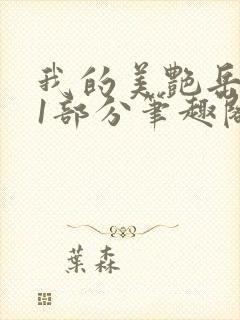 我的美艷岳
1部分筆趣閣
葉森